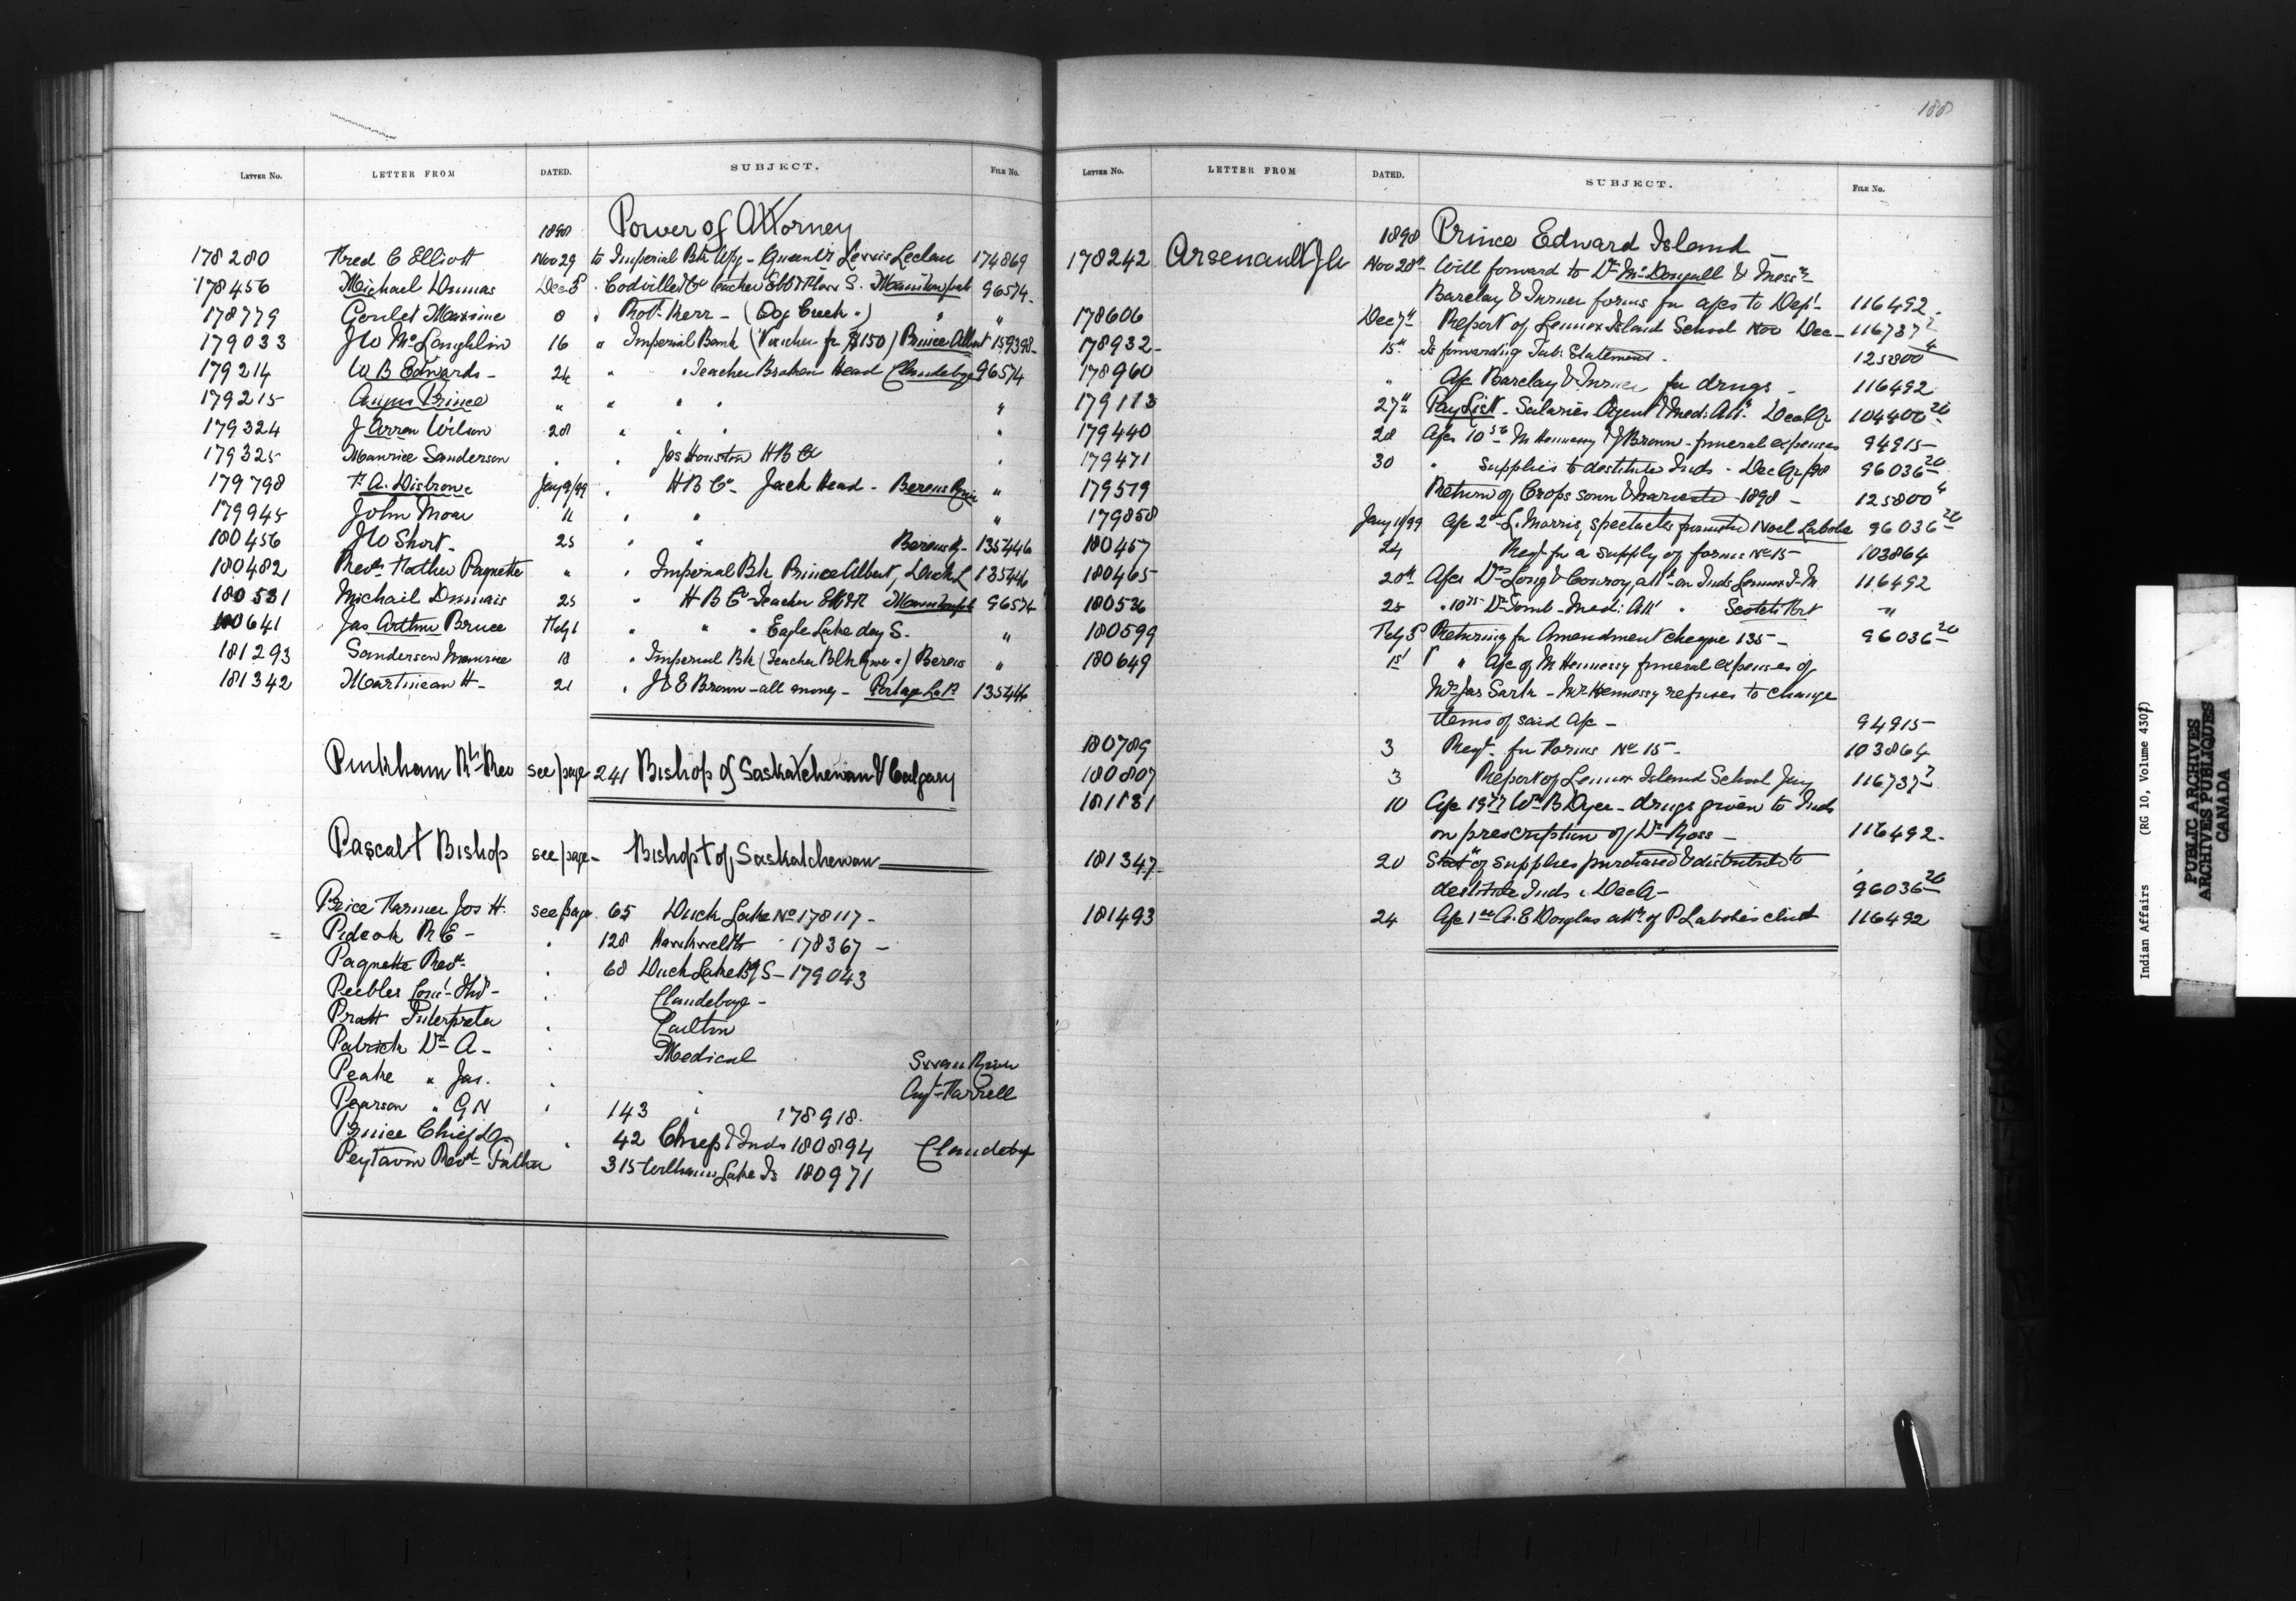 188
LETTER NO. LETTER FROM DATED. SUBJECT. FILE NO.
1898 Power of Attorney
178280 Fred C Elliott Nov 29 to Imperial Bk Wpg - Lewis Leclair 174869
178456 Michael Dumas Dec 5 " Codville & Co teacher Ebb & Flow S. Manitowpah 96574
178779 Goulet Maxime 8 " Robt Kerr - (Dog Creek ") " "
179033 J W McLaughlin 16 " Imperial Bank (Voucher for $150) Prince Albert 159398
179214 W B Edwards - 24 " " Teacher Broken Head Clandeboye 96574
179215 Angus Prince " " " " "
179324 J Arran Wilson 28 " " " "
179325 Maurice Sanderson " " Jas Houston H B Co "
179798 F. A. Disbrowe Jany 9/99 " H B Co - Jack Head - Berens River "
179945 John Moar 11 " " "
180456 J W Short - 25 " " Berens R - 135446
180482 Revd Father Paquette " " Imperial Bk Prince Albert, Duck L 135446
180531 Michail Dumais 25 " H B Co - Teacher Manitowpah 96574
180641 Jas Arthur Bruce Feby 1 " " " Eagle Lake day S. "
181293 Sanderson Maurice 18 " Imperial Bk (Teacher Blk River ") Berens "
181342 Martineau H - 21 " J & E Brown - all money - Portage La P 135446
Pinkham Rt Rev see page 241 Bishop of Saskatchewan & Calgary
Pascal † Bishop see page - Bishop † of Saskatchewan
Price Farmer Jos H. see page 65 Duck Lake No 178117 -
Pideok R E - " 128 Kawkwelth " 178367 -
Paquette Revd " 68 Duck Lake Bg S - 179043
Peebles " Clandeboye -
Pratt Interpreter " Carlton
Patrick Dr A - " Medical Swan River
Peake " Jas. " " Cuyt-Farrell
Pearson " G N " 143 " 178918.
Prince Chief " 42 Chief & Inds 180894 Clandeboy
Peytavin Revd Father 315 Williams Lake Is 180971
LETTER NO. LETTER FROM DATED. SUBJECT. FILE NO.
1898 Prince Edward Island -
178242 Arsenault J O Nov 28th Will forward to Dr McDougall & Messrs
Barclay & Turner forms for a/cs to Dept. 116492.
178606 Dec 7th Report of Lennox Island School Nov Dec - 116737 7
178932 - 15th Is forwarding Tab: Statement - 125800 4
178960 " A/c Barclay & Turner for drugs - 116492
179113 27th Pay List - Salaries Agent & Med: Att: Dec Qr 104400 20
179440 28 A/cs 10 56 M Hennessy & J Brown - funeral expenses 94915 -
179471 30 " Supplies to destitute Inds - Dec Qr/98 96036 20
179519 Return of Crops sown & harvested 1898 - 125800 4
179858 Jany 11/99 A/c 2 00 L. Morris, spectacles furnished Noel Labobe 96036 20
180457 24 Reqt for a supply of forms No 15 - 103864
180465 20th A/cs Drs Long & Conroy, attce on Inds Lennox I - M 116492
180536 25 " 10 75 Dr Toombs - Med: Att " Scotch Fort "
180599 Feby 3 Returning for Amendment cheque 135 - 96036 20
180649 1st " " A/c of M Hennessy funeral expenses of
Mrs Jas Sark - Mr Hennessy refuses to change
items of said A/c - 94915 -
180789 3 Reqt. for Forms No 15 - 103864
180807 3 Report of Lennox Island School Jany 116737 7
181131 10 A/c 19 77 Wm B Dyer - drugs given to Inds
on prescription of Dr Ross - 116492.
181347 - 20 Statt of supplies purchased & distributed to
destitute Inds " Dec Q - 96036 20
181493 24 A/c 1 00 A. E Douglas attce of P Labobe's child 116492
Indian Affairs (RG 10, Volume 4307)
PUBLIC ARCHIVES
ARCHIVES PUBLIQUES
CANADA